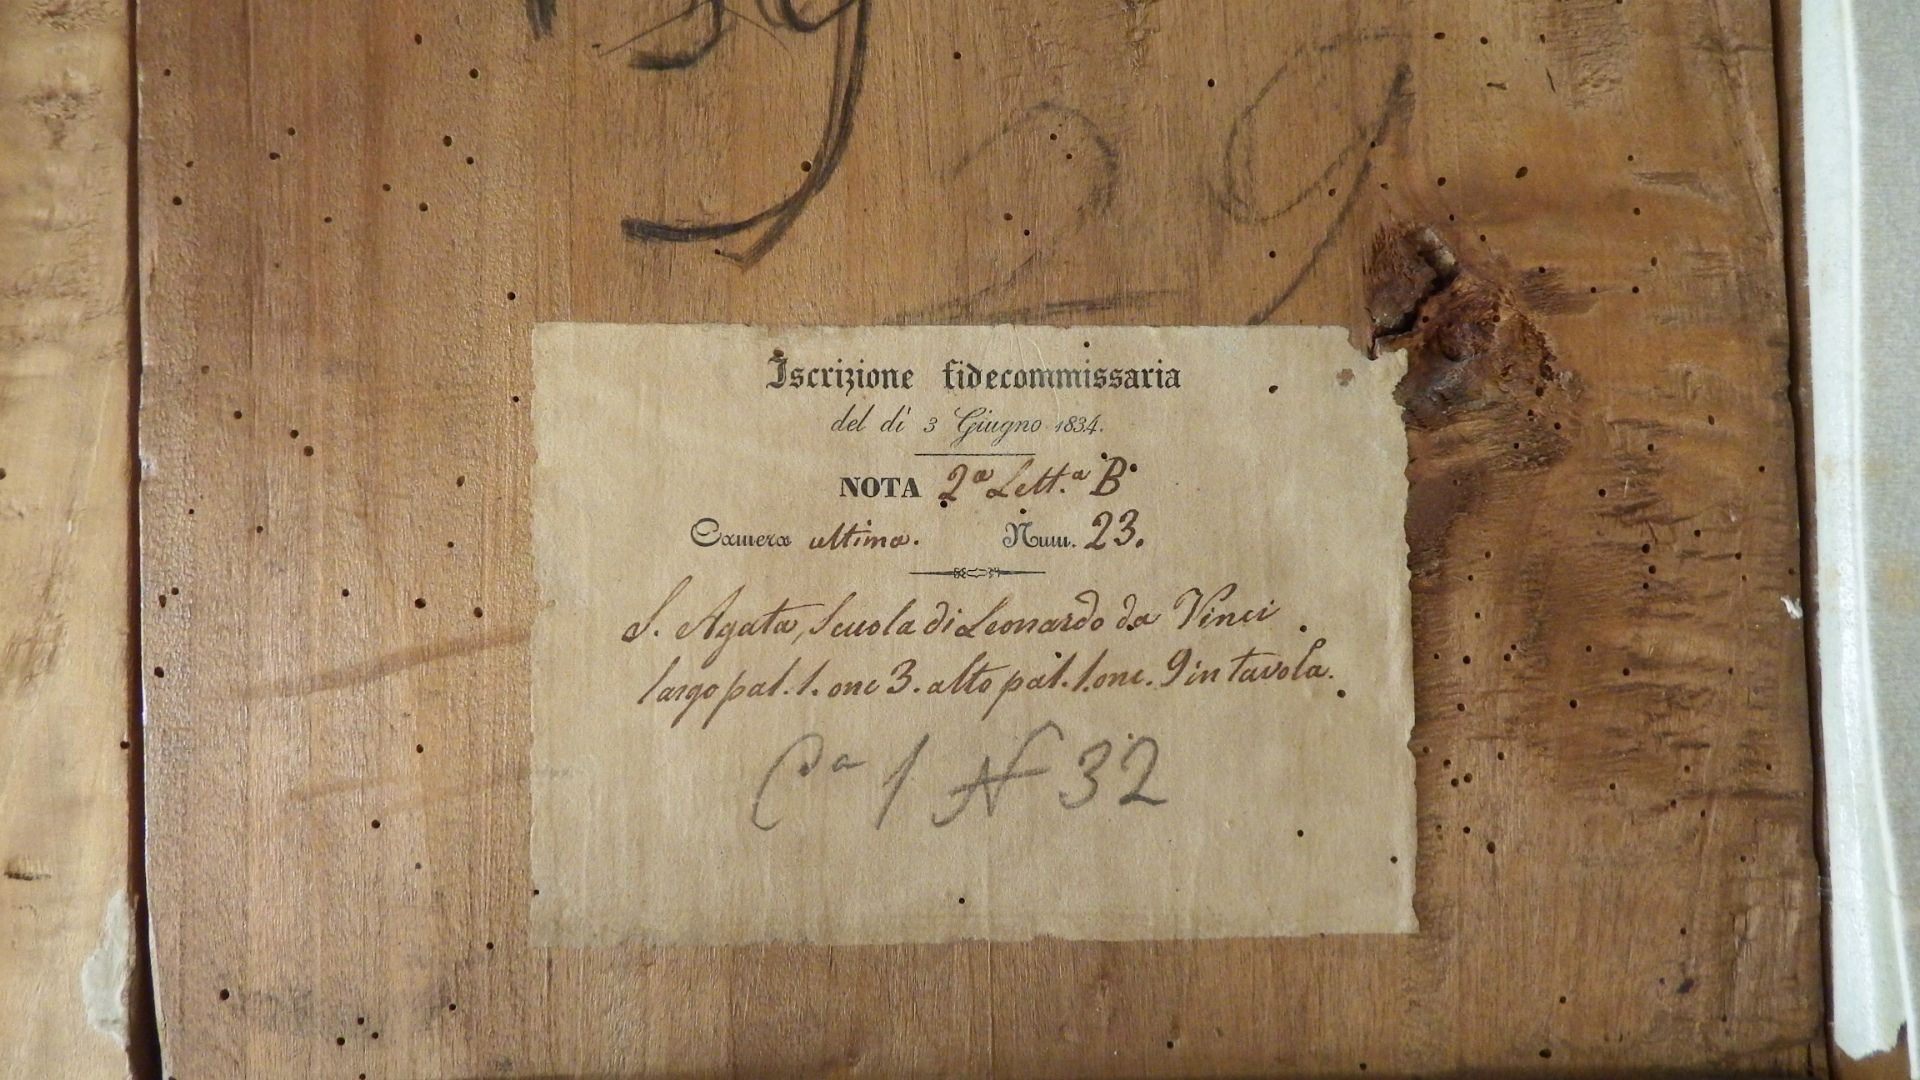 29
Iscrizione fidecommissaria
del dì 3 Giugno 1834.
NOTA 2ª Lett.ª B
Camera ultima. Num. 23.
S. Agata, Scuola di Leonardo da Vinci
largo pal. 1. onc 3. alto pal. 1. onc. 9 in tavola.
Cª 1 N 32